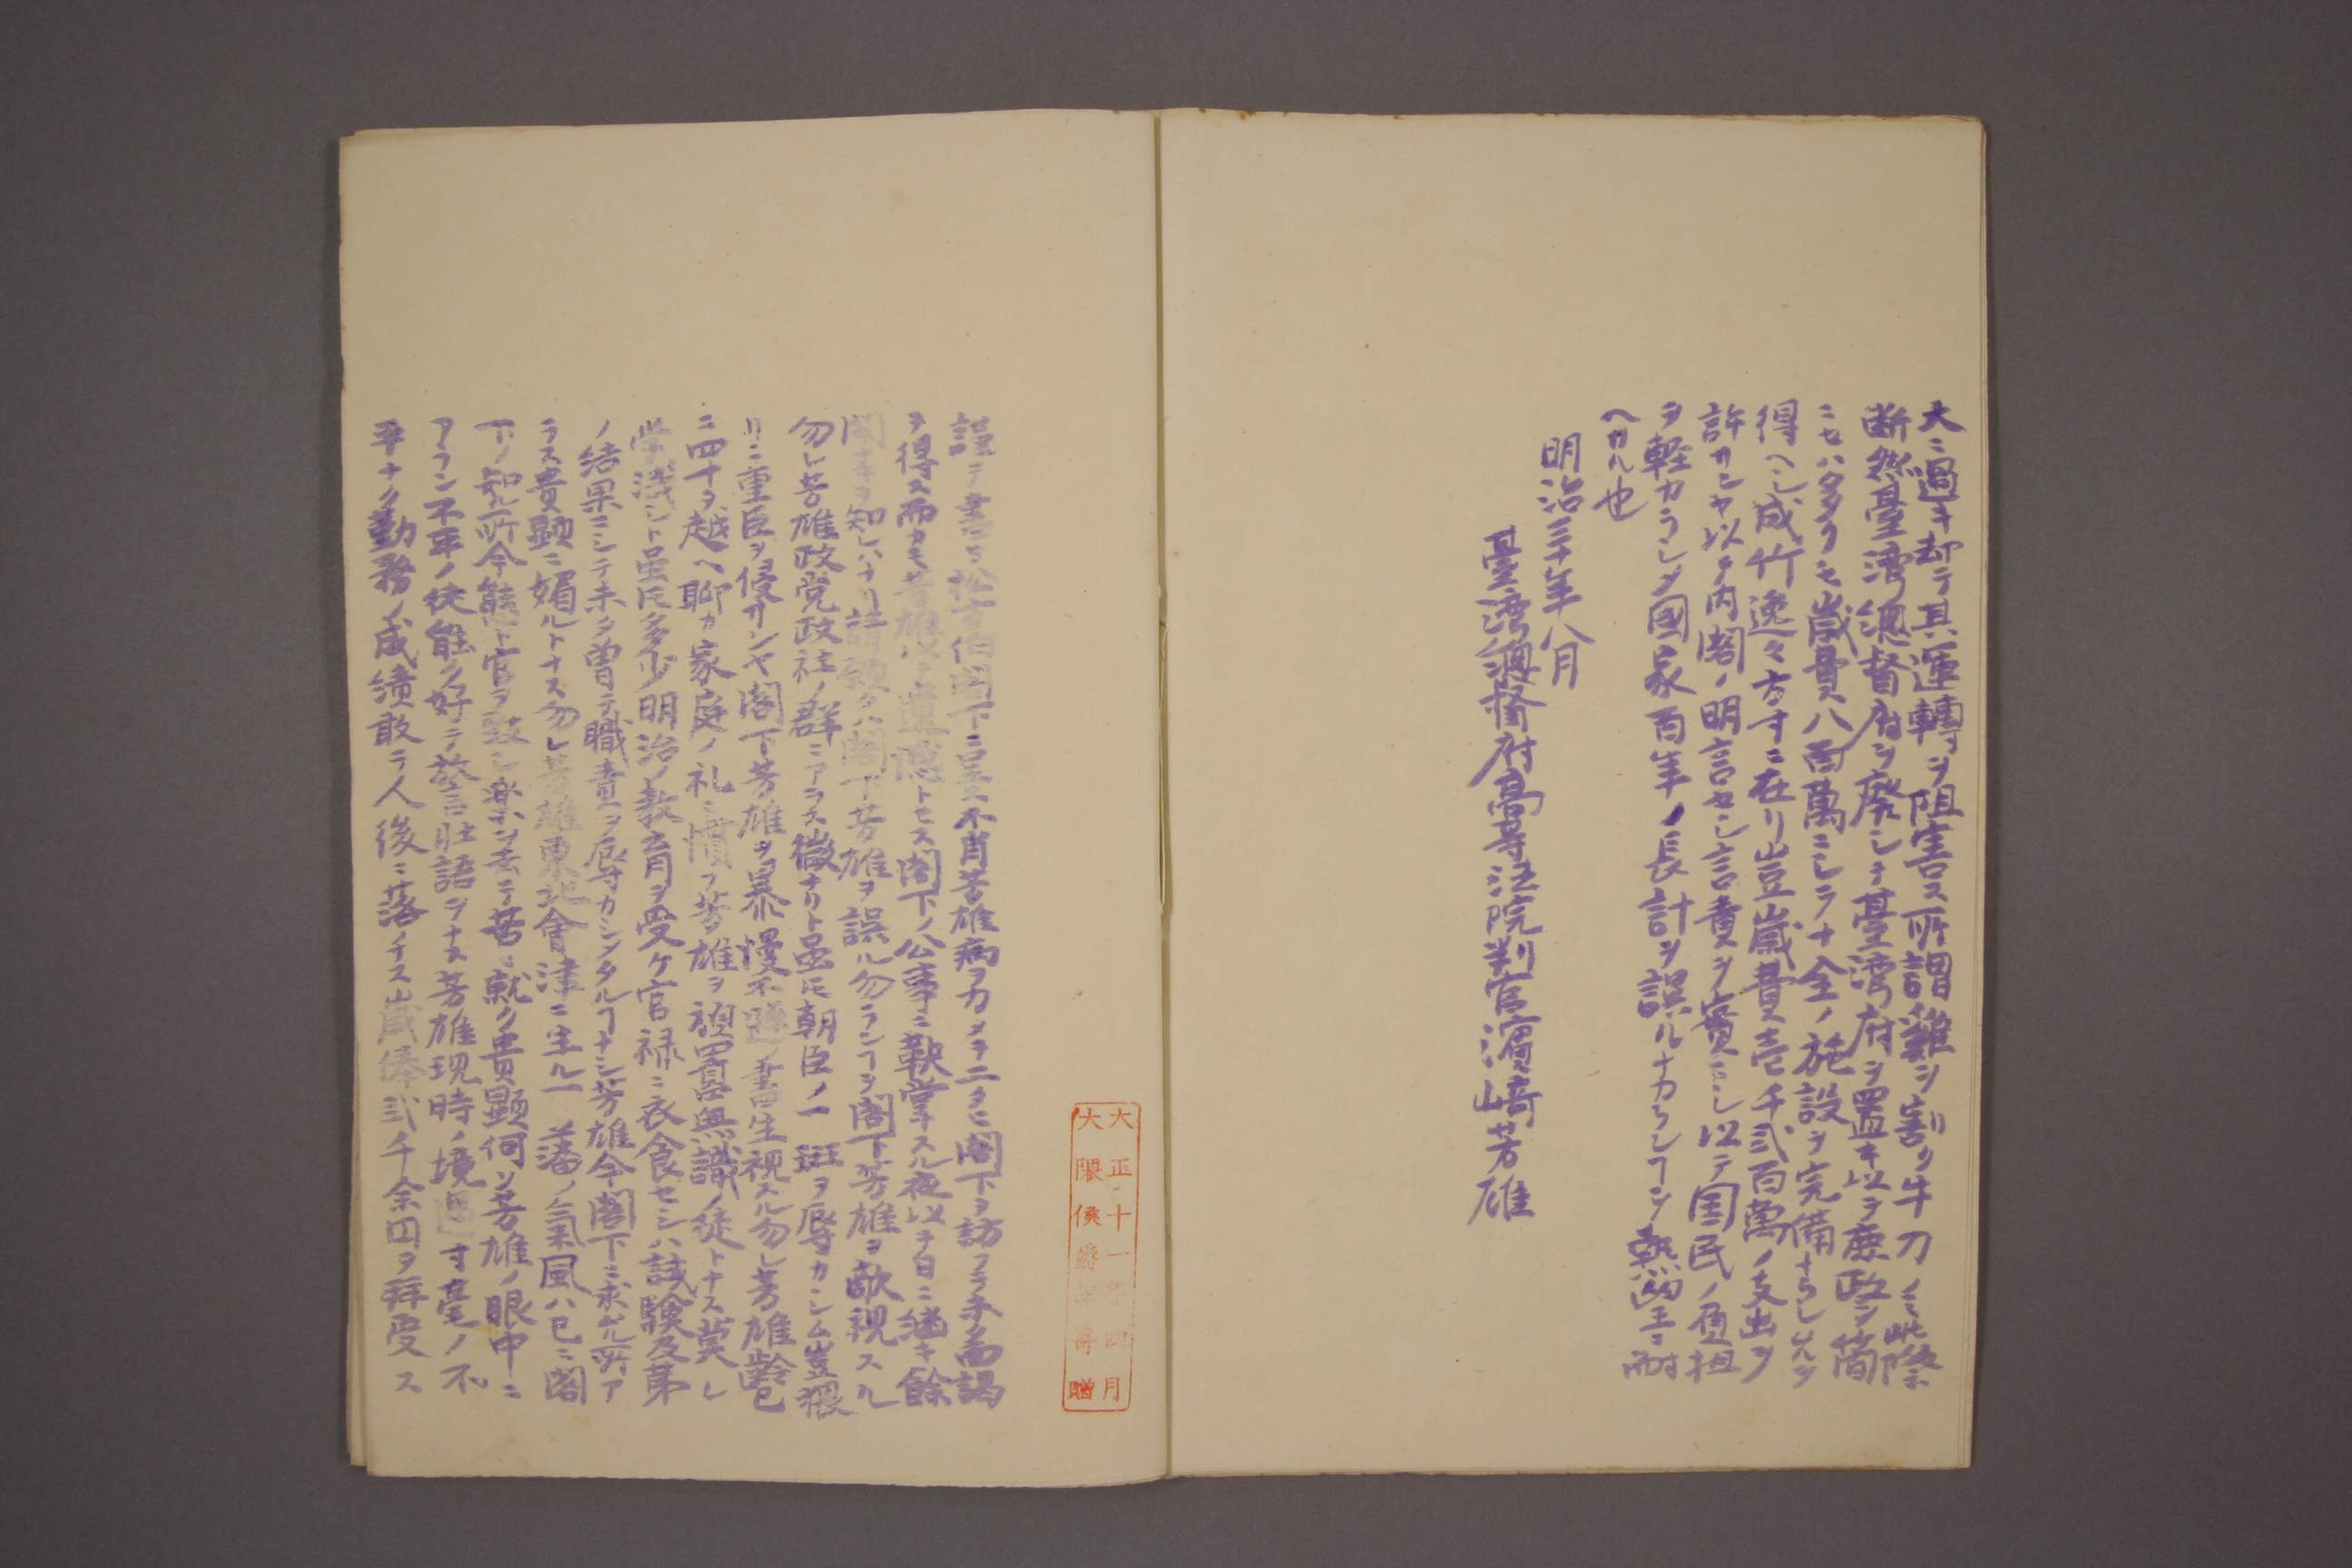 大ニ過キ却テ其運轉ヲ阻害ス所謂雞ヲ割ク牛刀ノミ此際
断然臺湾總督府ヲ廃シテ臺湾府ヲ置キ以テ庶政ヲ簡
ニセハ多クモ歳費八百萬ニシテ十全ノ施設ヲ完備ナラシムルヲ
得ヘシ成竹逸々方寸ニ在リ豈歳費壱千弐百萬ノ支出ヲ
許サンヤ以タ内閣ノ明言セシ言責ヲ實ニシ以テ国民ノ負担
ヲ軽カラシメ國家百年ノ長計ヲ誤ルナカラシコヲ熱望ニ耐
ヘサル也
明治三十年八月
臺湾總督府高等法院判官濱﨑芳雄
謹テ書ヲ松方伯閣下ニ呈ス不肖芳雄病ヲ力メテ二タヒ閣下ヲ訪フテ未タ面謁
ヲ得ス而カモ芳雄以テ遺憾トセス閣下ノ公事ニ鞅掌スル夜以テ日ニ継キ餘
閑ナキヲ知レハナリ請願クハ閣下芳雄ヲ誤ル勿ランコヲ閣下芳雄ヲ敵視スル
勿レ芳雄政党政社ノ群ニアラス微ナリト虽氏朝臣ノ一斑ヲ辱カシム豈猥
リニ重臣ヲ侵サンヤ閣下芳雄ヲ暴慢不遜ノ書生視スル勿レ芳雄齢已
ニ四十ヲ越ヘ聊カ家庭ノ礼ニ慣フ芳雄ヲ頑嚚無識ノ徒トナス莫レ
学浅シト虽氏多少明治ノ教育ヲ受ケ官禄ニ衣食セシハ該験及第
ノ結果ニシテ未タ曽テ職責ヲ辱カシメタルコナシ芳雄今閣下ニ求ムル所ア
ラス貴顕ニ媚ルトナス勿レ芳雄東北會津ニ生ル一藩ノ氣風ハ已ニ閣
下ノ知ル所今態ト官ヲ致シ楽ヲ去テ苦ニ就ク貴顕何ソ芳雄ノ眼中ニ
アラン不平ノ徒能ク好テ豪言壮語ヲナス芳雄現時ノ境遇寸毫ノ不
平ナク勤務ノ成績敢テ人後ニ落チス歳俸弐千余円ヲ拝受ス
大正十一年四月
大隈侯爵家寄贈